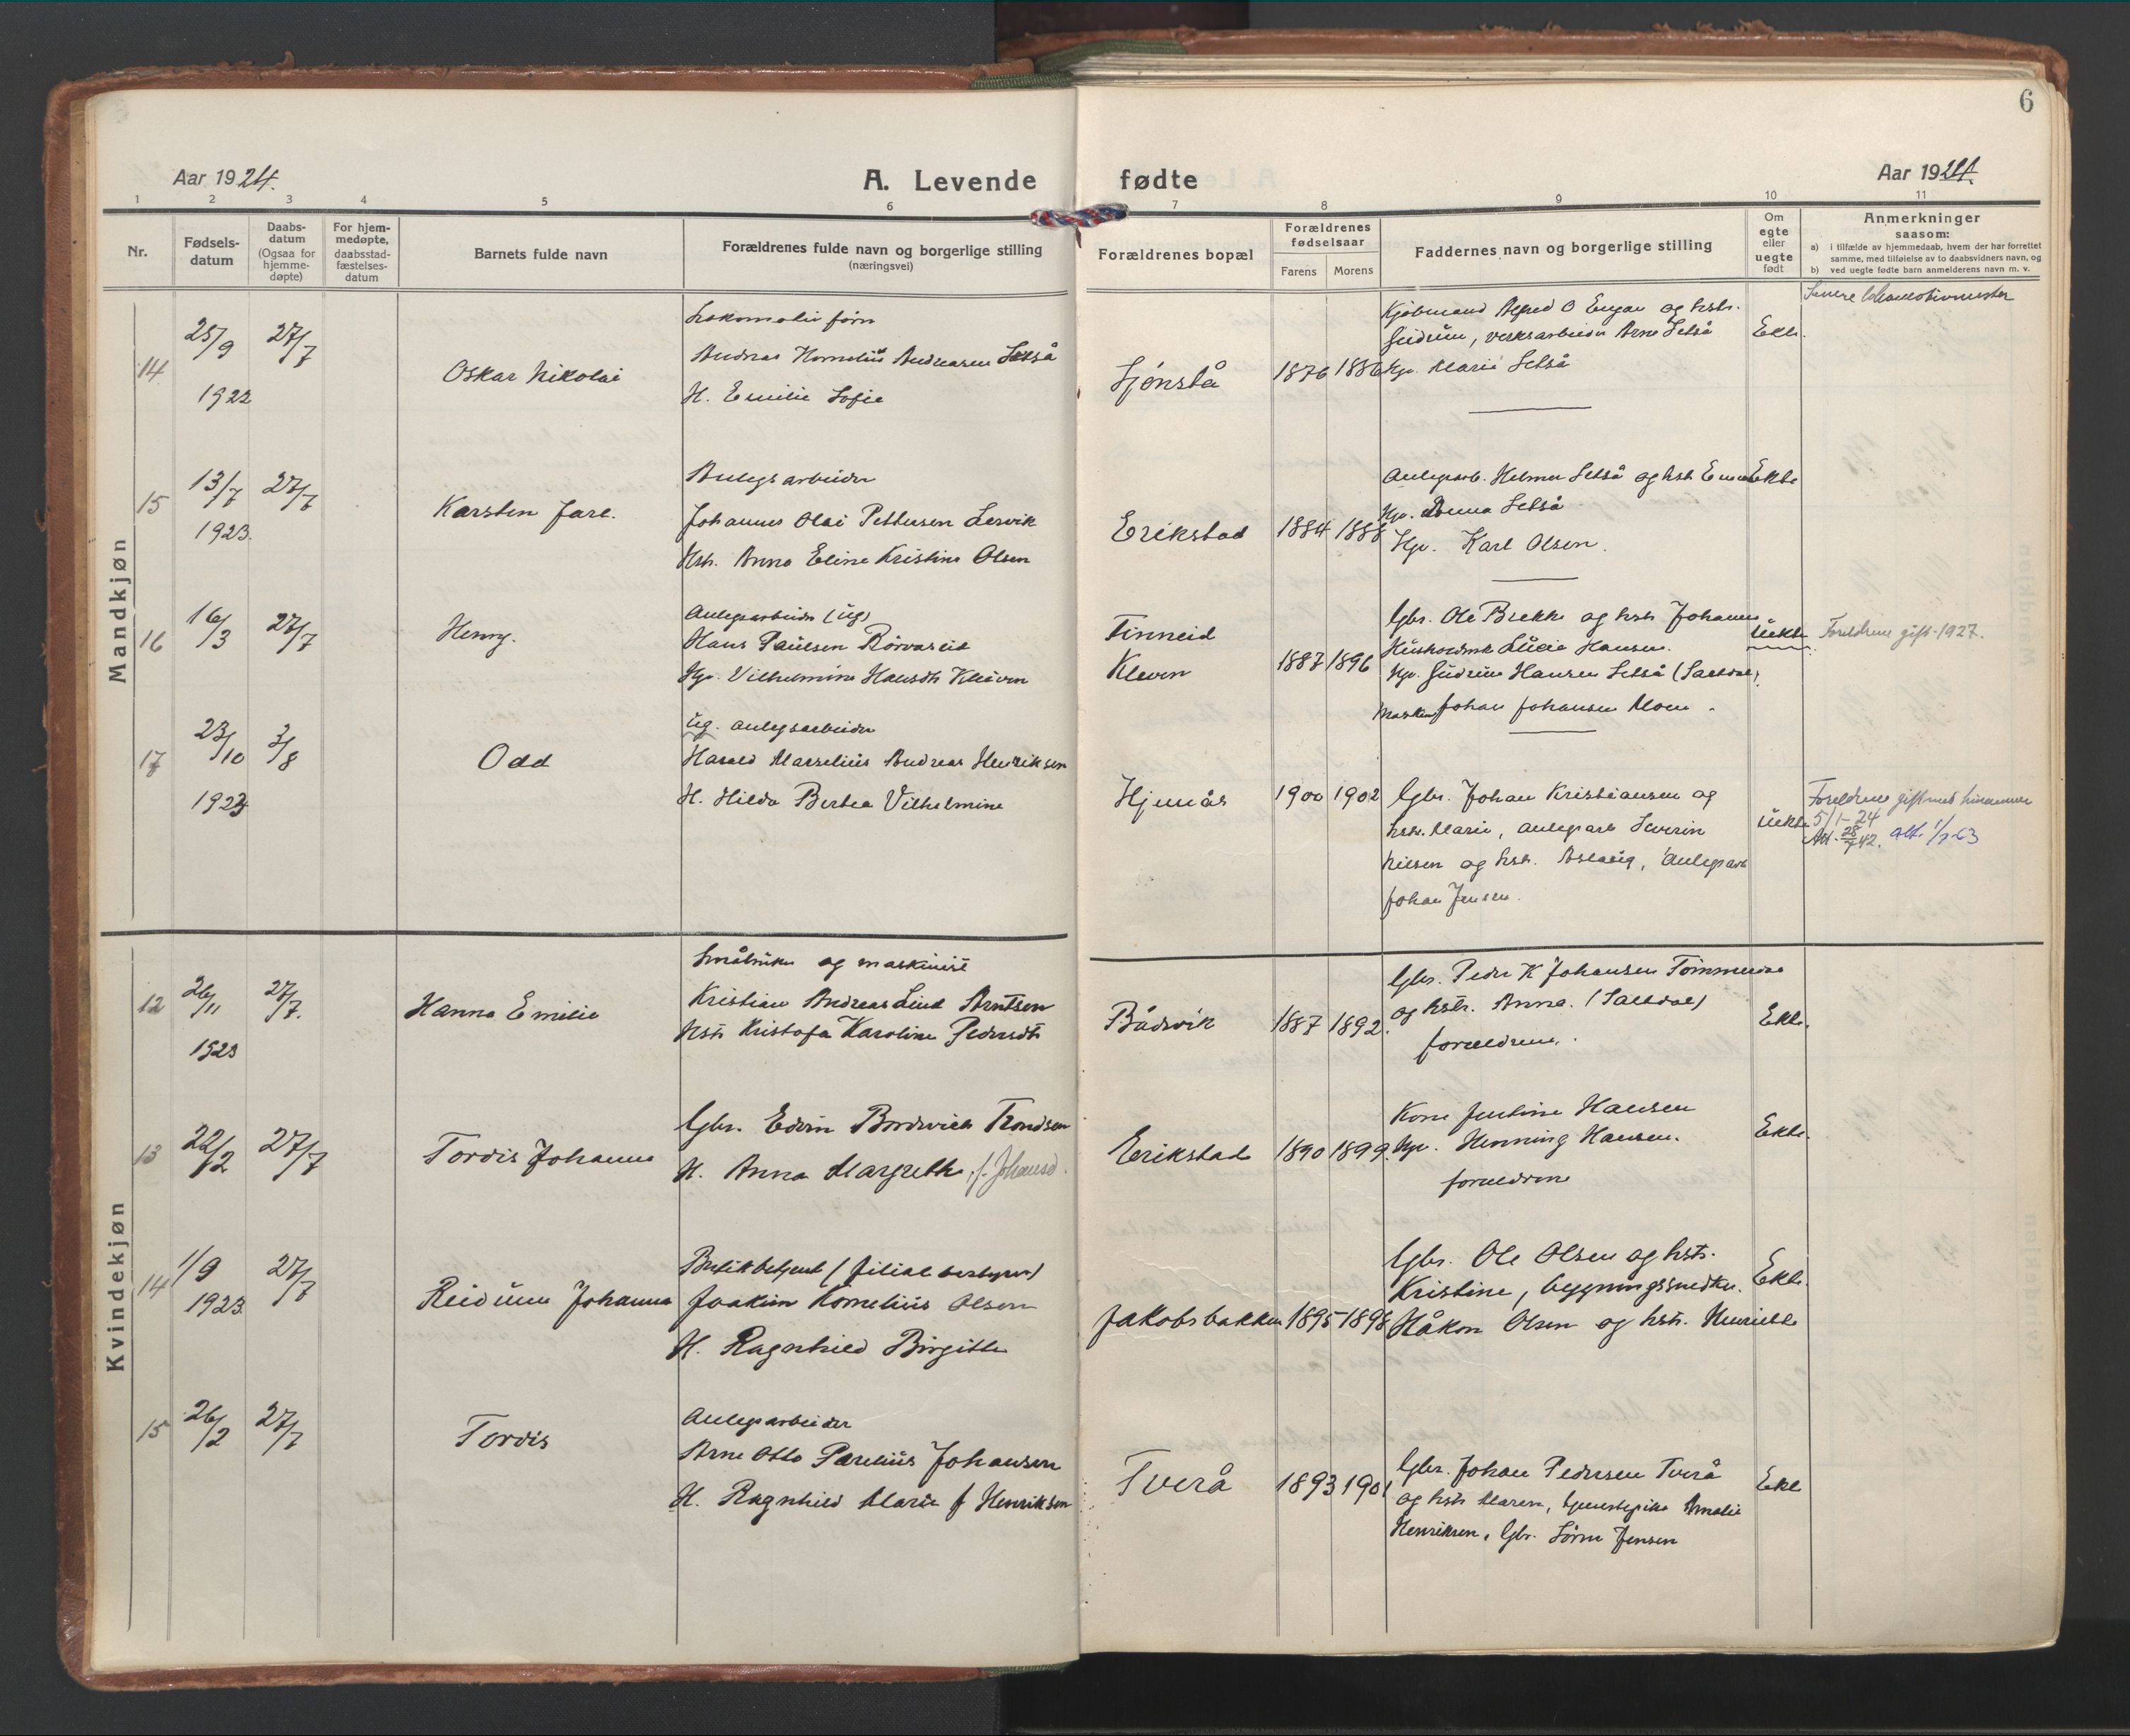 6
Aar 1924.
A. Levende fødte
Aar 1924.
1 2 3 4 5 6 7 8 9 10 11
Nr.
Fødsels-
datum
Daabs-
datum
(Ogsaa for
hjemme-
døpte)
For hjem-
medøpte,
daabsstad-
fæstelses-
datum
Barnets fulde navn
Forældrenes fulde navn og borgerlige stilling
(næringsvei)
Forældrenes bopæl
Forældrenes
fødselsaar
Farens Morens
Faddernes navn og borgerlige stilling
Om
egte
eller
uegte
født
Anmerkninger
saasom:
a) i tilfælde av hjemmedaab, hvem der har forrettet
samme, med tilføielse av to daabsvidners navn, og
b) ved uegte fødte barn anmelderens navn m. v.
Mandkjøn
14
25/9
1922
27/7
Oskar Nikolai
Lokomotiv fører
Andreas Kornelius Andreasen Setså
H. Emilie Sofie
Sjønstå
1876 1886
Kjøbmand Alfred O Engan og hstr.
Gudrun, verksarbeider Arne Setså
Kpr. Marie Setså
Ekte.
Senere lokomotivmester
15
13/7
1923.
27/7
Karsten Jarl.
Anlegsarbeider
Johannes Olai Pettersen Lervik
Hstr. Anna Eline Kristine Olsen
Erikstad
1884 1888
Anlegsarb. Helmer Setså og hstr.
Setså
Karl Olsen.
Ekte
16
16/3
27/7
Henry.
Anlegsarbeider (ug)
Hans Paulsen Rörvaseid
Vilhelmine Hansdtr Kleiven
Finneid
Kleven
1887 1896
Gbr. Ole Brekke og hstr Johanne
Lucie Hansen.
Gudrun Hansen Setså (Saltdal)
Johan Johansen Moen.
Uekte
Foreldrene gift 1927.
17
23/10
1923
3/8
Odd
ug. anlegsarbeider
Harald Marselius Andreas Henriksen
H. Hilda Bertea Vilhelmine
Hjemås
1900 1902
Gbr. Johan Kristiansen og
hstr. Marie, anlegsarb Severin
Nilsen og hstr. Aslaug, anlegsarb
Johan Jensen.
Uekte
Foreldrene gift med hinannen
5/1-24
Att. 28/7 42. att. 1/7-63
Kvindekjøn
12
26/11
1923
27/7.
Hanna Emilie
Småbruker og maskinist
Kristian Andreas Lind Arntsen
Hstr Kristofa Karoline Pedersdtr
Bådsvik
1887 1892.
Gbr. Peder K Johansen Tømmerdal
og hstr. Anna. (Saltdal)
foreldrene.
Ekte.
13
22/2
27/7
Tordis Johanne
Gbr. Edvin Bordevick Trondsen
H. Anna Margrethe, f. Johansd.
Erikstad
1890 1899.
Kone Justine Hansen
Henning Hansen.
foreldrene
Ekte.
14
1/9
1923.
27/7
Reidunn Johanna
Butikbetjent (filialbestyrer)
Joakim Kornelius Olsen
H. Ragnhild Birgitte
Jakobsbakken
1895 1898
Gbr. Ole Olsen og hstr.
Kristine, bygningssnedker.
Håkon Olsen og hstr. Henriette
Ekte.
15
26/2
27/7
Tordis
Anlegsarbeider
Arne Otto Parelius Johansen
H. Ragnhild Marie f Henriksen
Tverå
1893 1901
Gbr. Johan Pedersen Tverå
og hstr Maren, tjenestepike Amalie
Henriksen, Gbr. Sören Jensen
Ekte